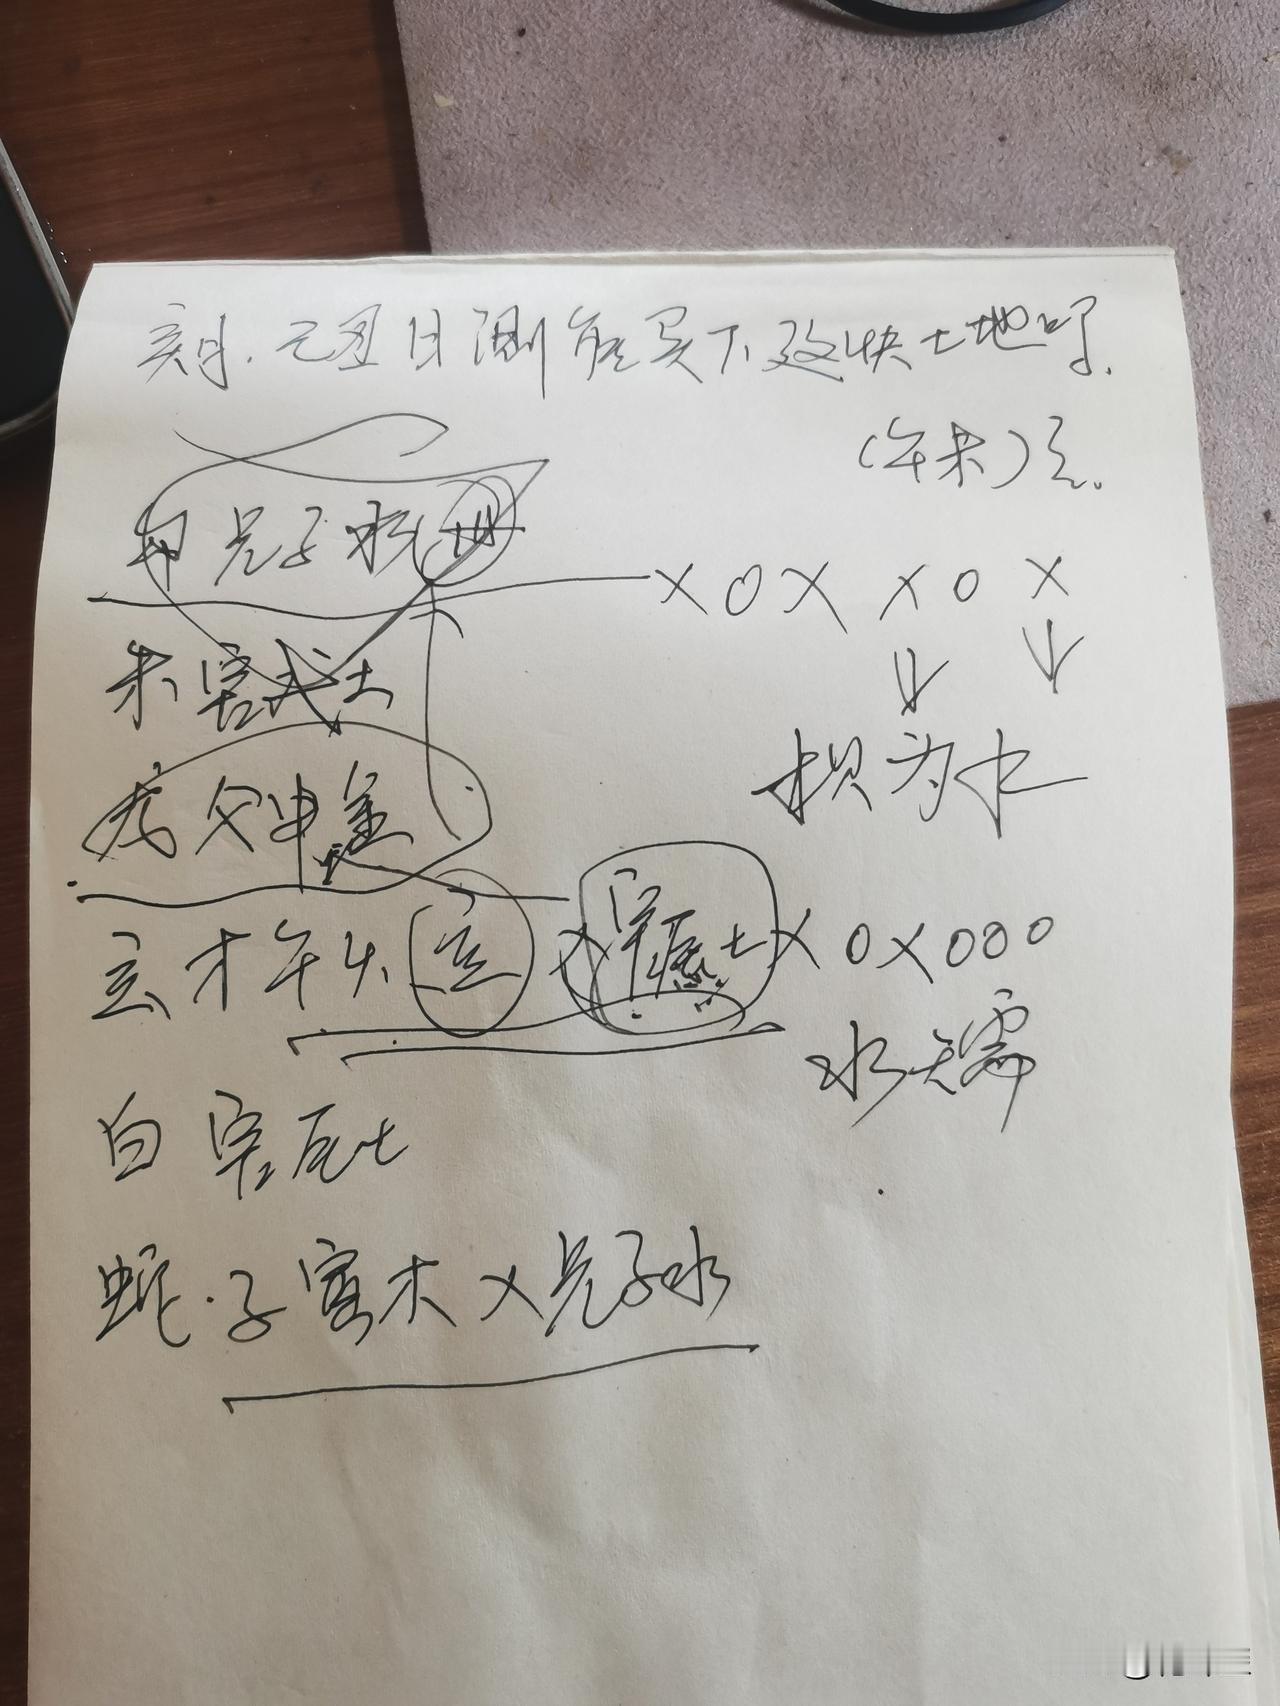 亥月.己丑日测能买下这块土地吗.
(午未)空.
勾兄子水世
X O X X O X
朱官戌土
坎为水
龙父申金
玄才午火应X官辰土
X O X O O O
水天需
白官辰土
蛇.子寅木X兄子水